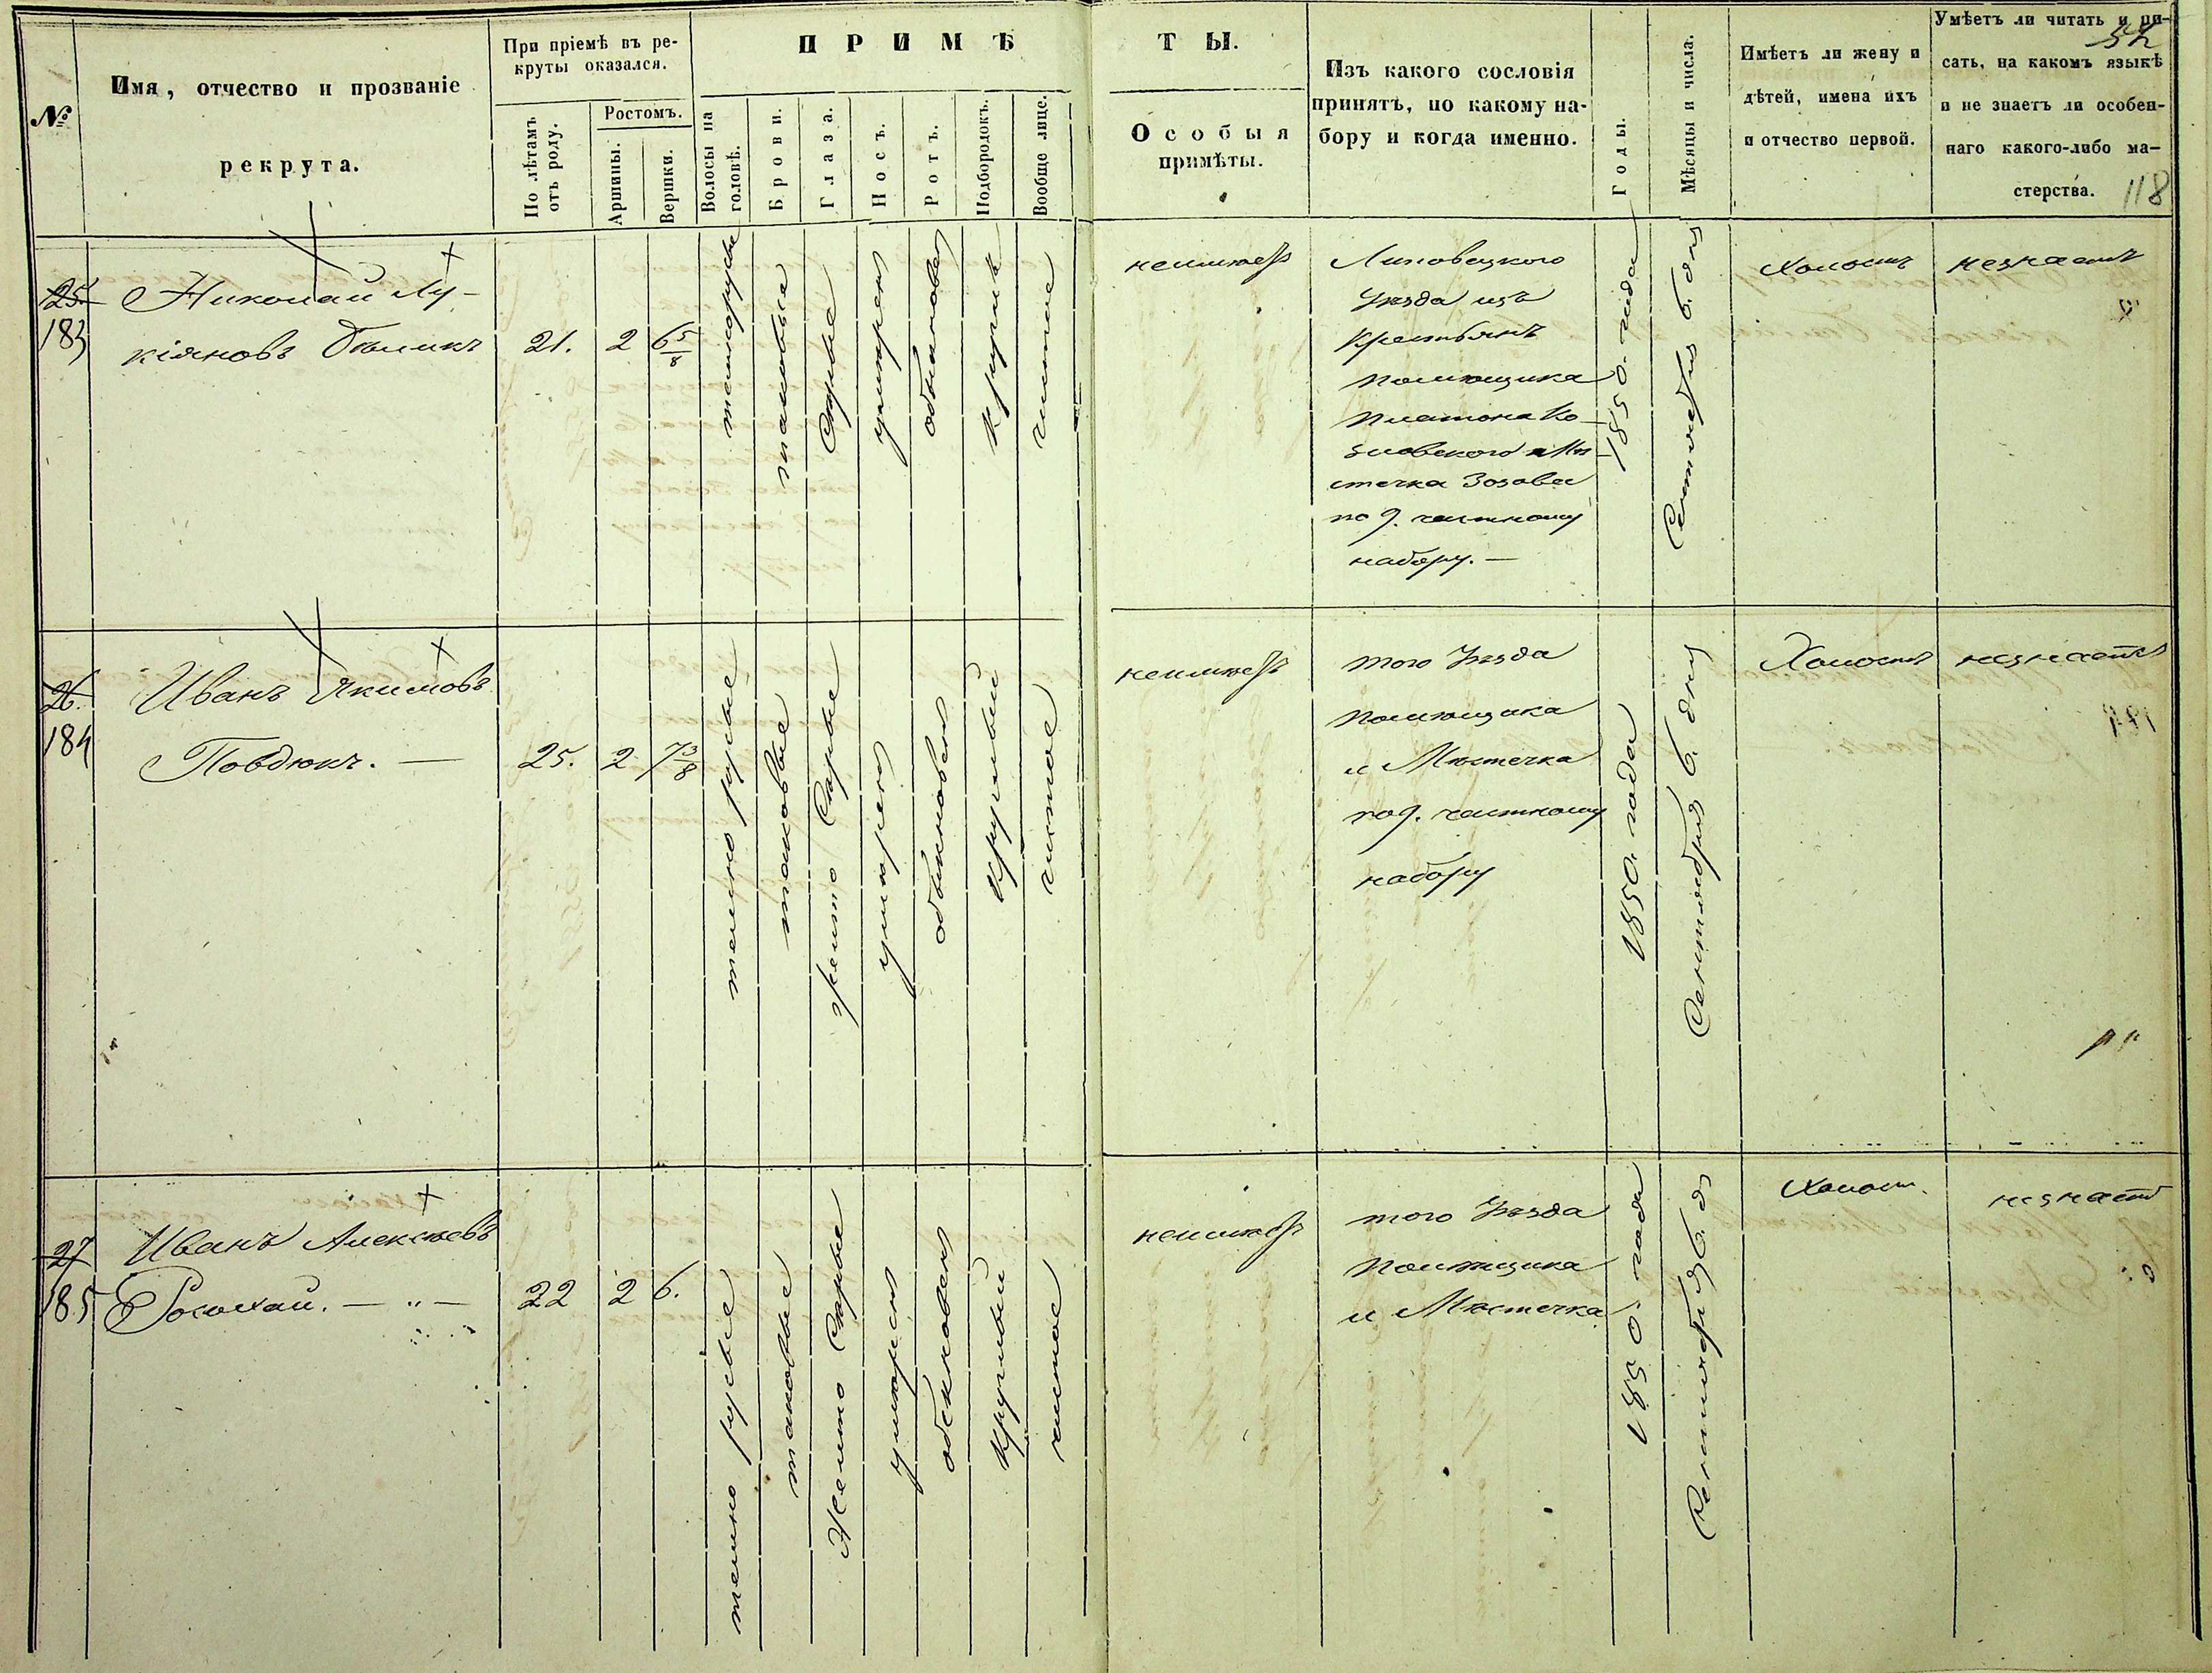 №
Имя, отчество и прозваніе
рекрута.
При пріемѣ въ ре-
круты оказался.
По лѣтамъ
отъ роду.
Ростомъ.
Аршины.
Вершки.
ПРИМѢ
Волосы на
головѣ.
Брови.
Глаза.
Носъ.
Ротъ.
Подбородокъ.
Вообще лице.
ТЫ.
Особыя
примѣты.
Изъ какого сословія
принятъ, по какому на-
бору и когда именно.
Годы.
Мѣсяцы и числа.
Имѣетъ ли жену и
дѣтей, имена ихъ
и отчество первой.
Умѣетъ ли читать и пи-
сать, на какомъ языкѣ
и не знаетъ ли особен-
наго какого-либо ма-
стерства.
118
25.
183
Николай Лу-
кіяновъ
21.
2
6 5/8
темнорусые
таковые
Сѣрые
умѣренъ
обыкновен
Круглый
чистое
неимѣетъ
Липовецкого
Уѣзда изъ
Крестьянъ
помѣщика
Платона Ко-
зловского и Мѣ
стечка Зозова
по 9. частному
набору. —
1850. года
Сентября 6. дня
Холостъ
незнаетъ
26.
184
Иванъ Якимовъ
Повдюкъ. —
25.
2
7 3/8
темно русые
таковые
Сѣрые
умѣренъ
обыкновенъ
Круглый
чистое
неимѣетъ
того Уѣзда
помѣщика
и Мѣстечка
по 9. частному
набору
1850. года
Сентября 6. дня
Холостъ
незнаетъ
27
185
Иванъ Алексѣевъ
22
2
6.
темно русые
таковые
Желто Сѣрые
умѣренъ
обыкновенъ
Круглый
чистое
неимѣетъ
того Уѣзда
помѣщика
и Мѣстечка
1850. года
Сентября 6. д
Холост.
незнаетъ